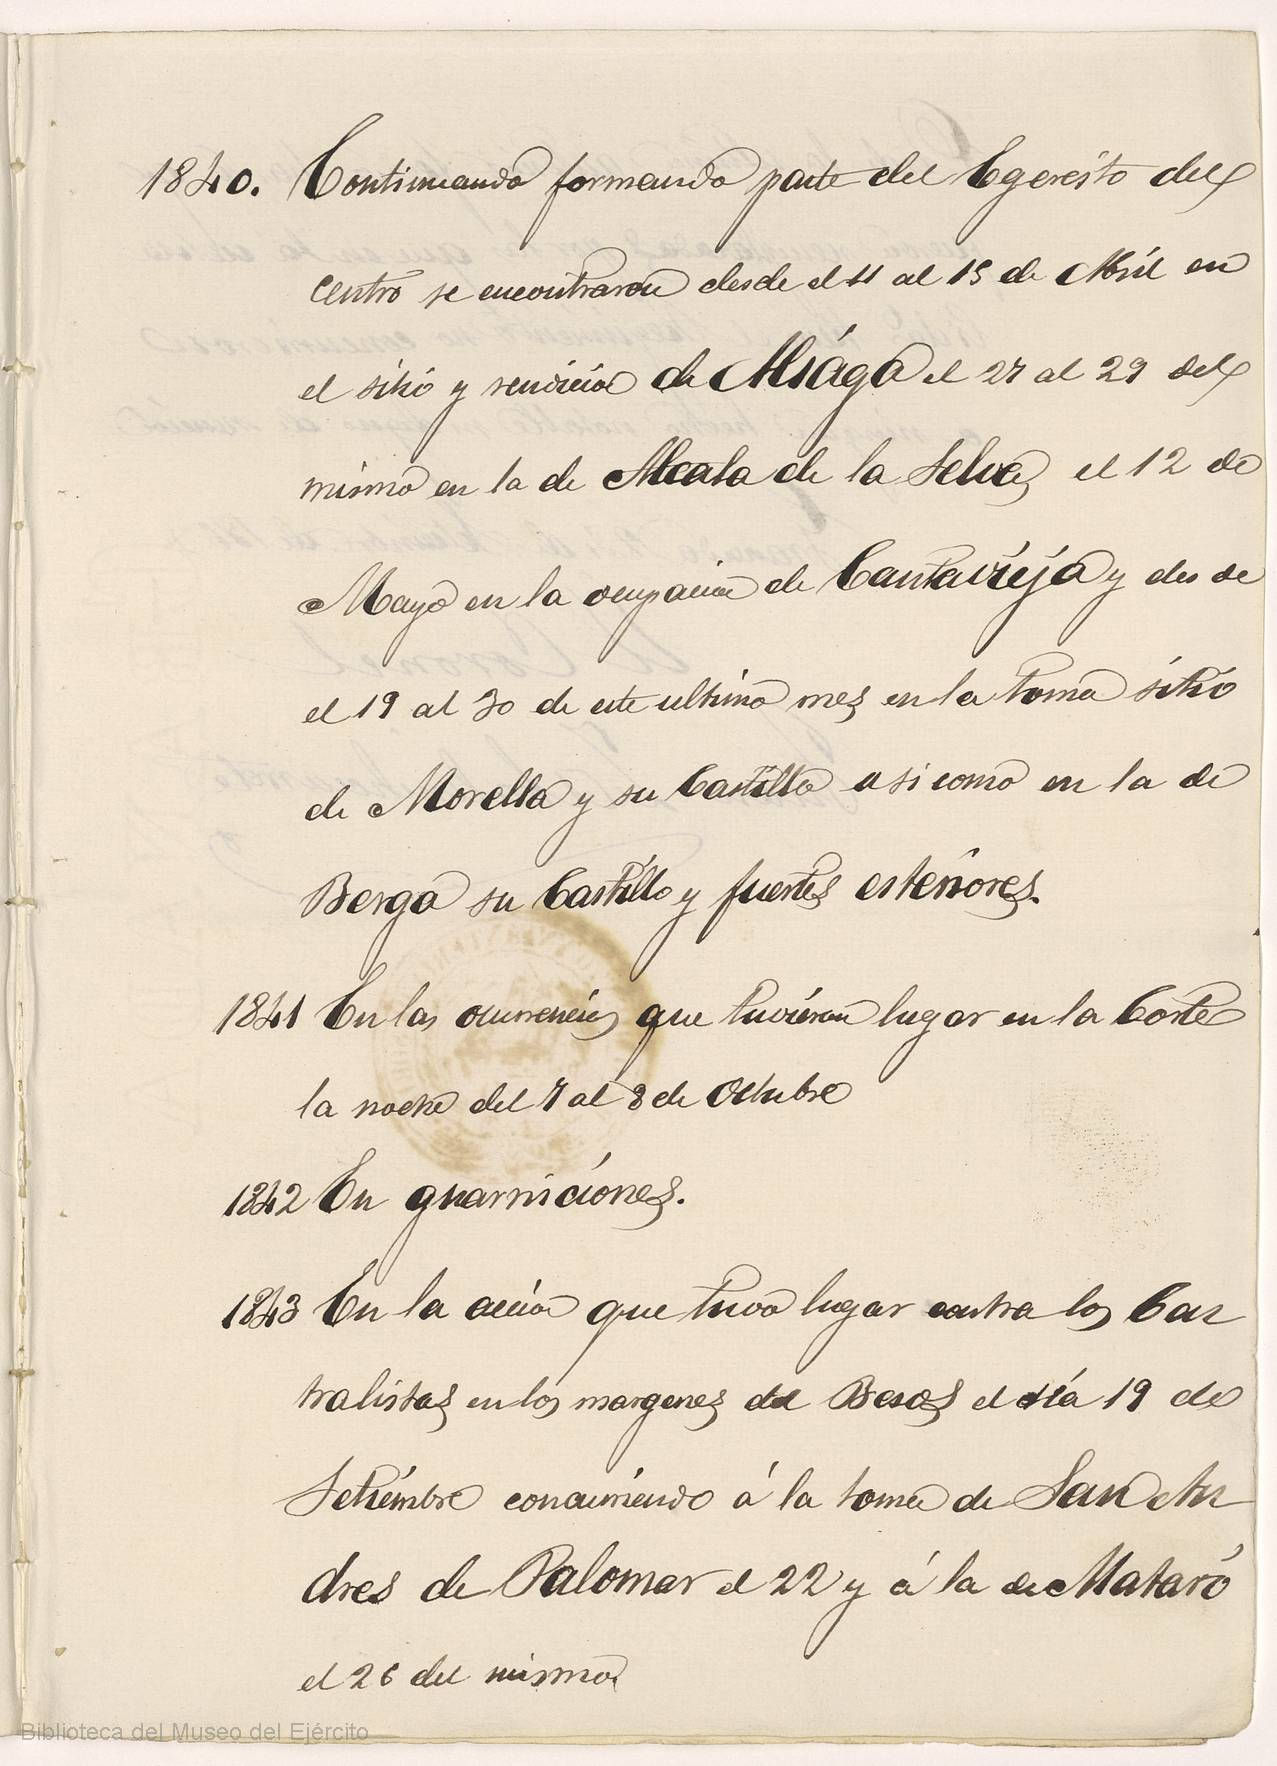 1840. Continuando formando parte del Egersito del
centro se encontraron desde el 11 al 15 de Abril en
el sitio y rendicion de Aliága el 27 al 29 del
mismo en la de Alcala de la Selva el 12 de
Mayo en la ocupacion de Cantavieja y des de
el 19 al 30 de este ultimo mes en la toma sitio
de Morella y su Castillo asi como en la de
Berga su Castillo y fuertes esteriores.
1841 En las ocurrencias que tuvieron lugar en la Corte
la noche del 7 al 8 de Octubre
1842 En guarniciones.
1843 En la accion que tuvo lugar contra los Cen
tralistas en los margenes del Besos el día 19 de
Setiembre concurriendo á la toma de San An
dres de Palomar el 22 y á la de Mataró
el 26 del mismo.
Biblioteca del Museo del Ejército